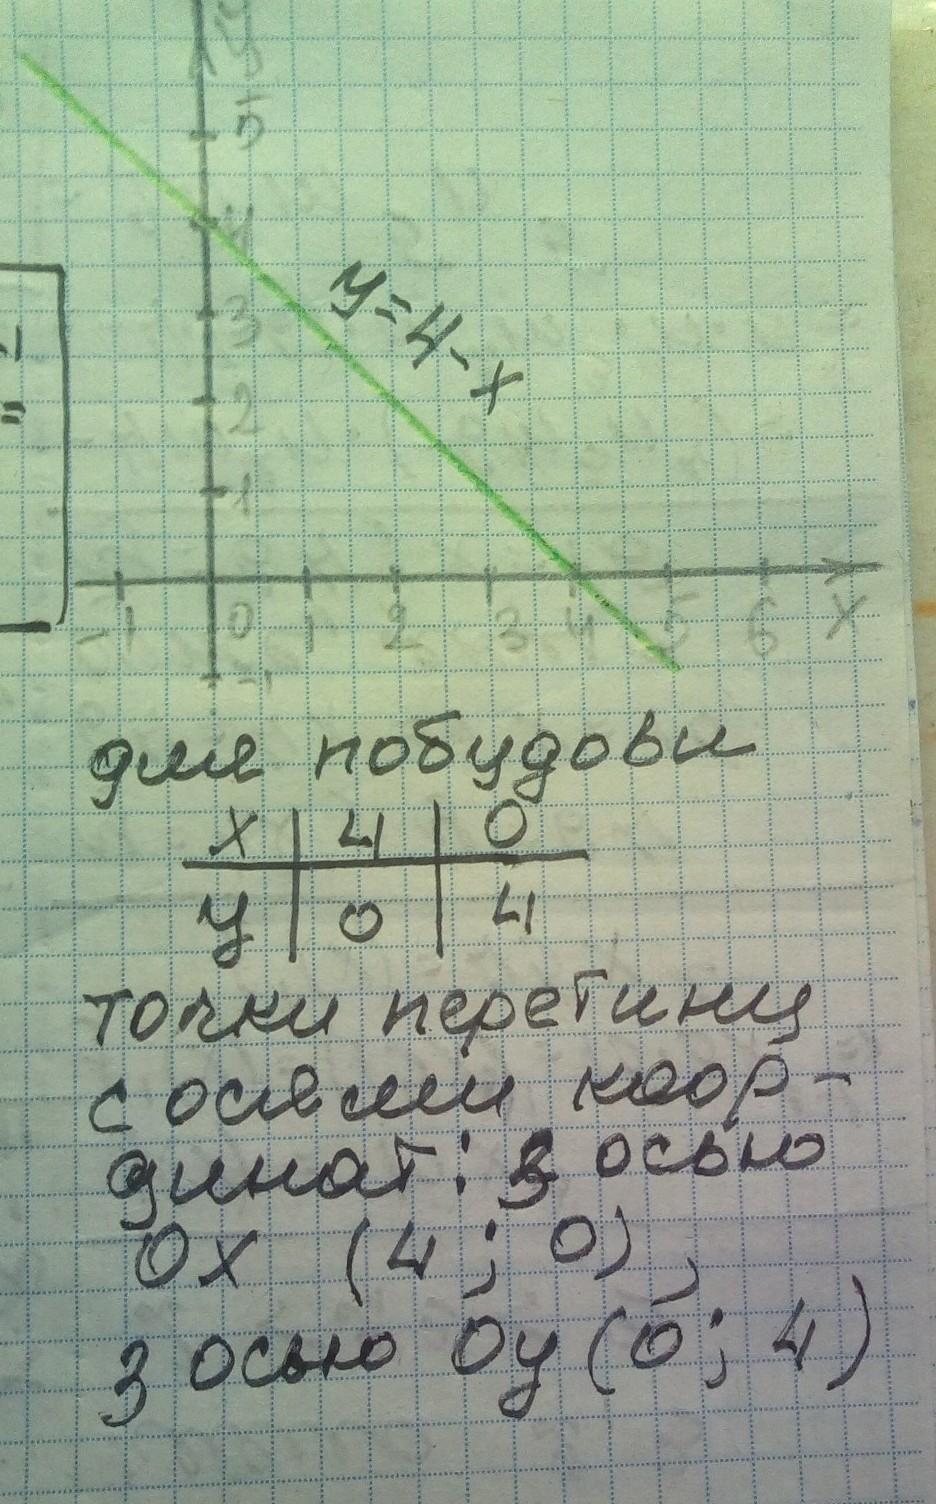 y
5
4
3
2
1
y=4-x
-1 0 1 2 3 4 5 6 x
-1
=
для побудови
x | 4 | 0
y | 0 | 4
точки перетину
с осями коор-
динат: з осью
Ox (4; 0),
з осью Oy (0; 4)